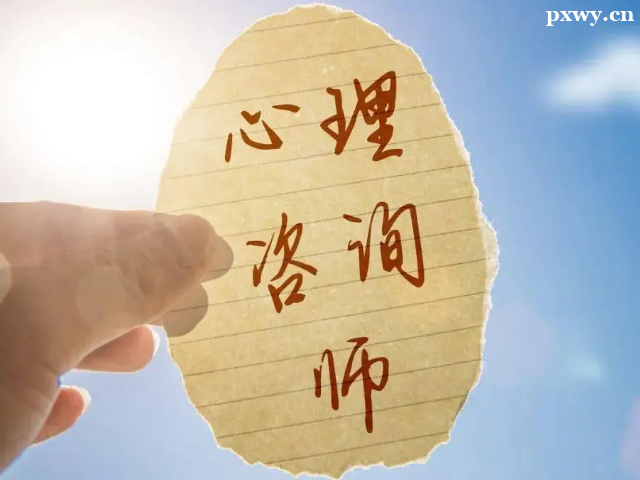 pxwy.cn
心理
咨询
师